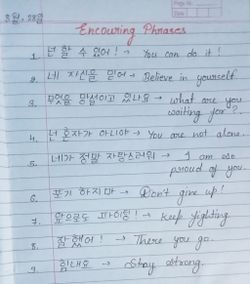 8월, 28일
Encouring Phrases
1. 넌 할 수 있어! → You can do it!
2. 네 자신을 믿어 → Believe in yourself
3. 무엇을 망설이고 있나요 → what are you
waiting for?
4. 넌 혼자가 아니야 → You are not alone..
5. 네가 정말 자랑스러워 → I am so
proud of you.
6. 포기 하지마 → Don't give up!
7. 앞으로도 파이팅! → keep fighting
8. 잘했어! → There you go.
9. 힘내요 → Stay strong.